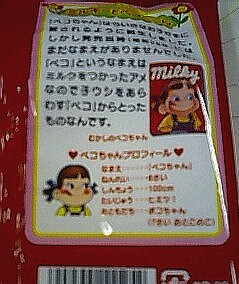 「ペコちゃん」は
しかし発売当時
まだなまえがありませんでした。
「ペコ」というなまえは
ミルクをつかったアメ
なので子ウシをあら
わす「ベコ」からとった
ものなんです。
Milky
むかしのペコちゃん
♥ペコちゃんプロフィール♥
なまえ……「ペコちゃん」
ねんれい……6さい
しんちょう……100cm
たいじゅう……ヒミツ！
おともだち……ポコちゃん